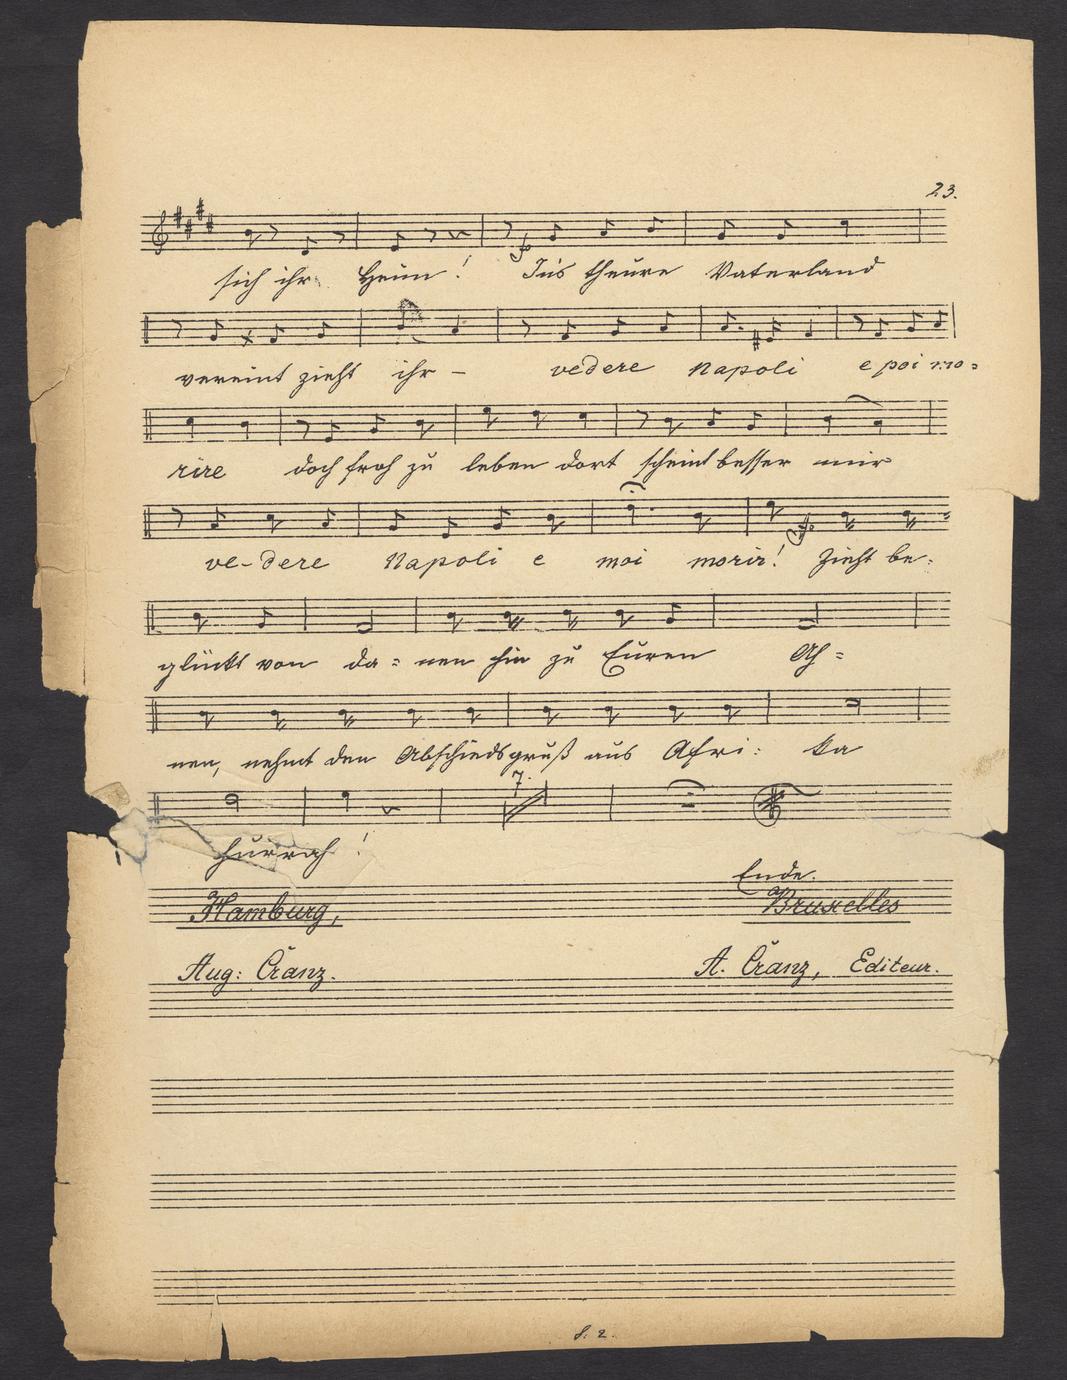 23.
sich ihr Heim! In's theure Vaterland
vereint zieht ihr – vedere Napoli e poi mo=
rire doch froh zu leben dort scheint besser mir
ve-dere Napoli e moi morir! Zieht be=
glückt von da= nen hin zu Euren Ah=
nen, nehmt den Abschiedsgruß aus Afri= ka
7.
hurrah!
Ende.
Hamburg, Bruxelles
Aug: Cranz. A. Cranz, Editeur.